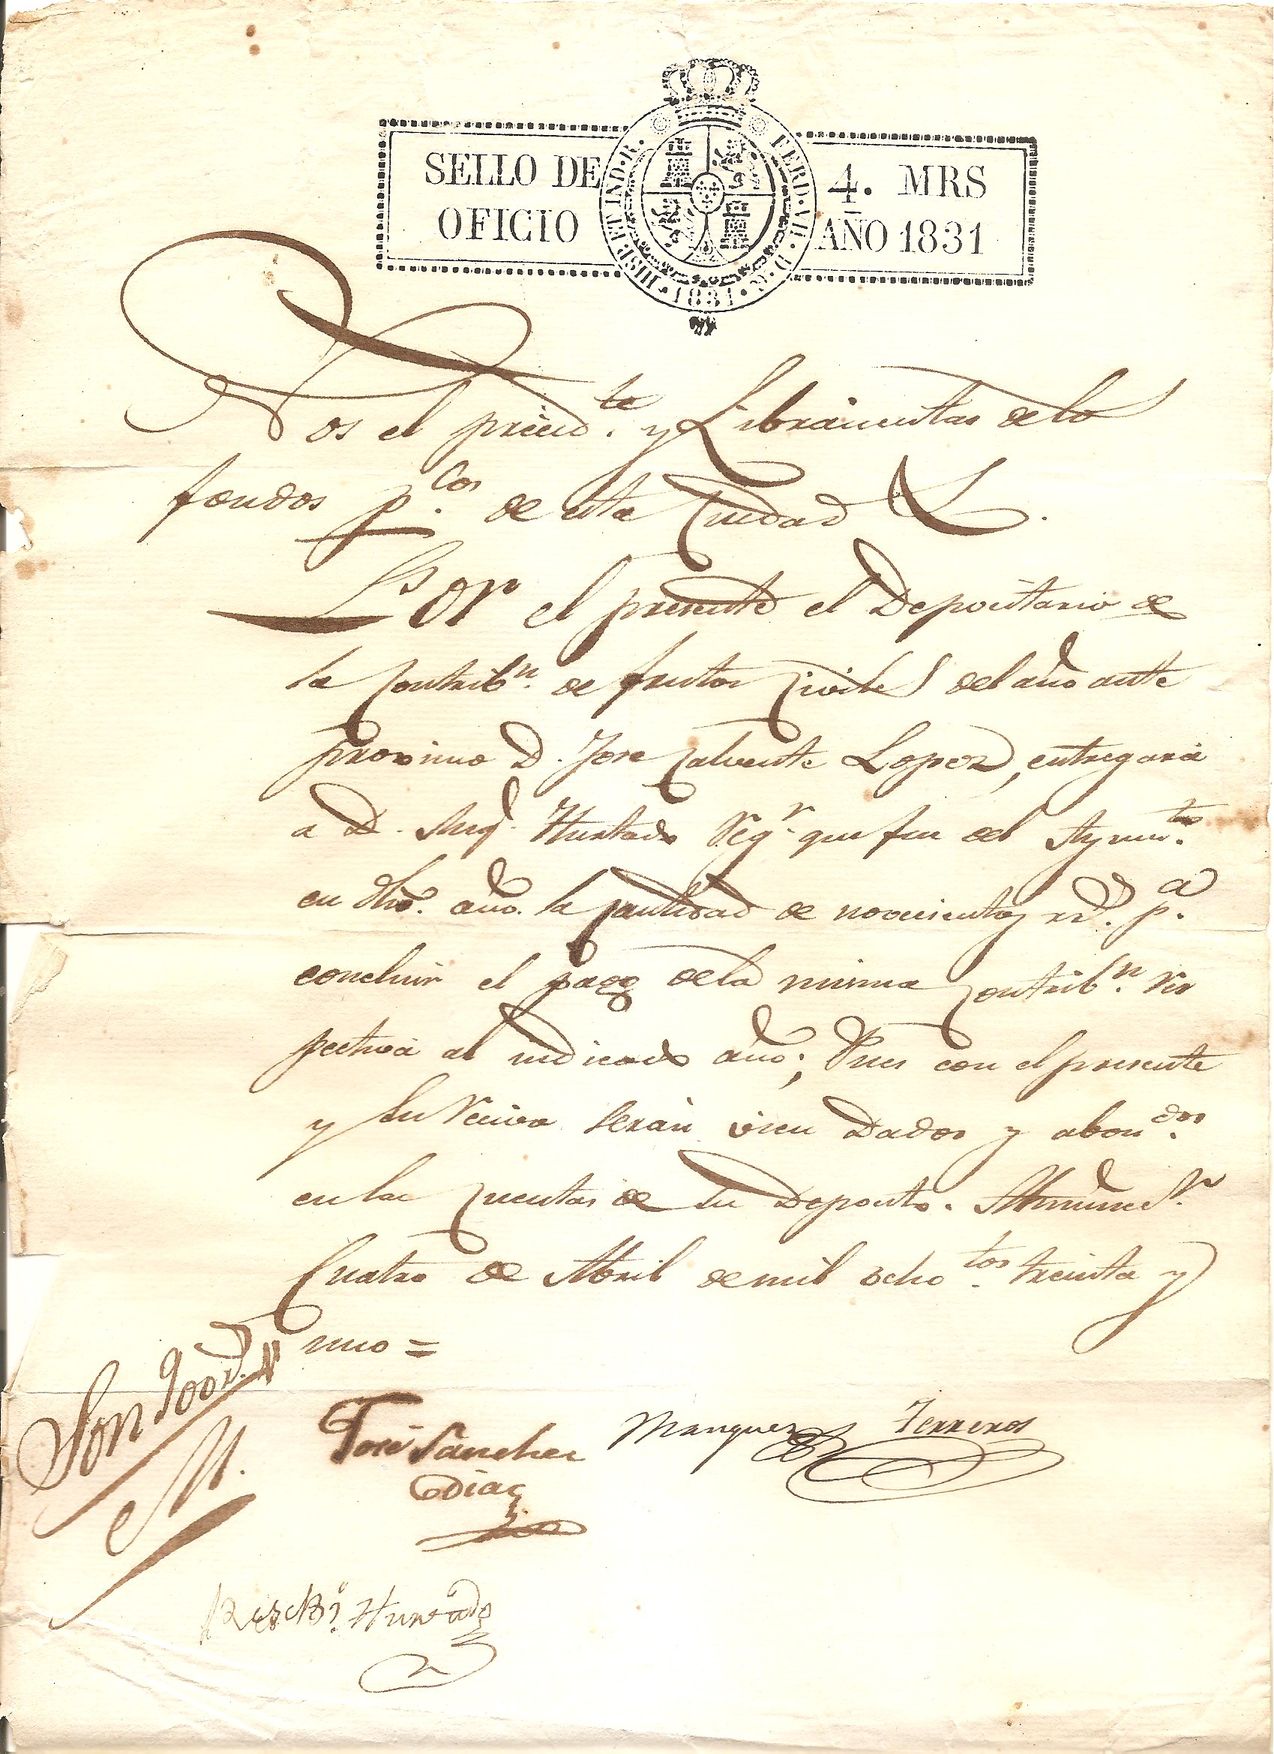 SELLO DE OFICIO
4. MRS AÑO 1831
HISP. ET IND. R. FERD. VII. D. G. 1831
Nos el presid.te y Libramentas de lo
fondos p.cos de esta Ciudad
Por el presente el Depocitario de
la Contrib.n de frutos Civiles del año ante
proximo D. Jose Calvente Lopez, entregará
a D. Hurtado Reg.r que fue del Aynm.to
en dho. año la Cantidad de novecientos rr.s p.a
concluir el pago de la misma Contrib.n res
pectiva al indicado año; Pues con el presente
y su recivo serán vien Dados y abon.dos
en las Cuentas de su Deposito. Almuñec.r
Cuatro de Abril de mil ocho.tos treinta y
uno =
Son 900 r.s v.n
José Sánchez
Diaz
Marquez Terreros
Resebí Hurtado